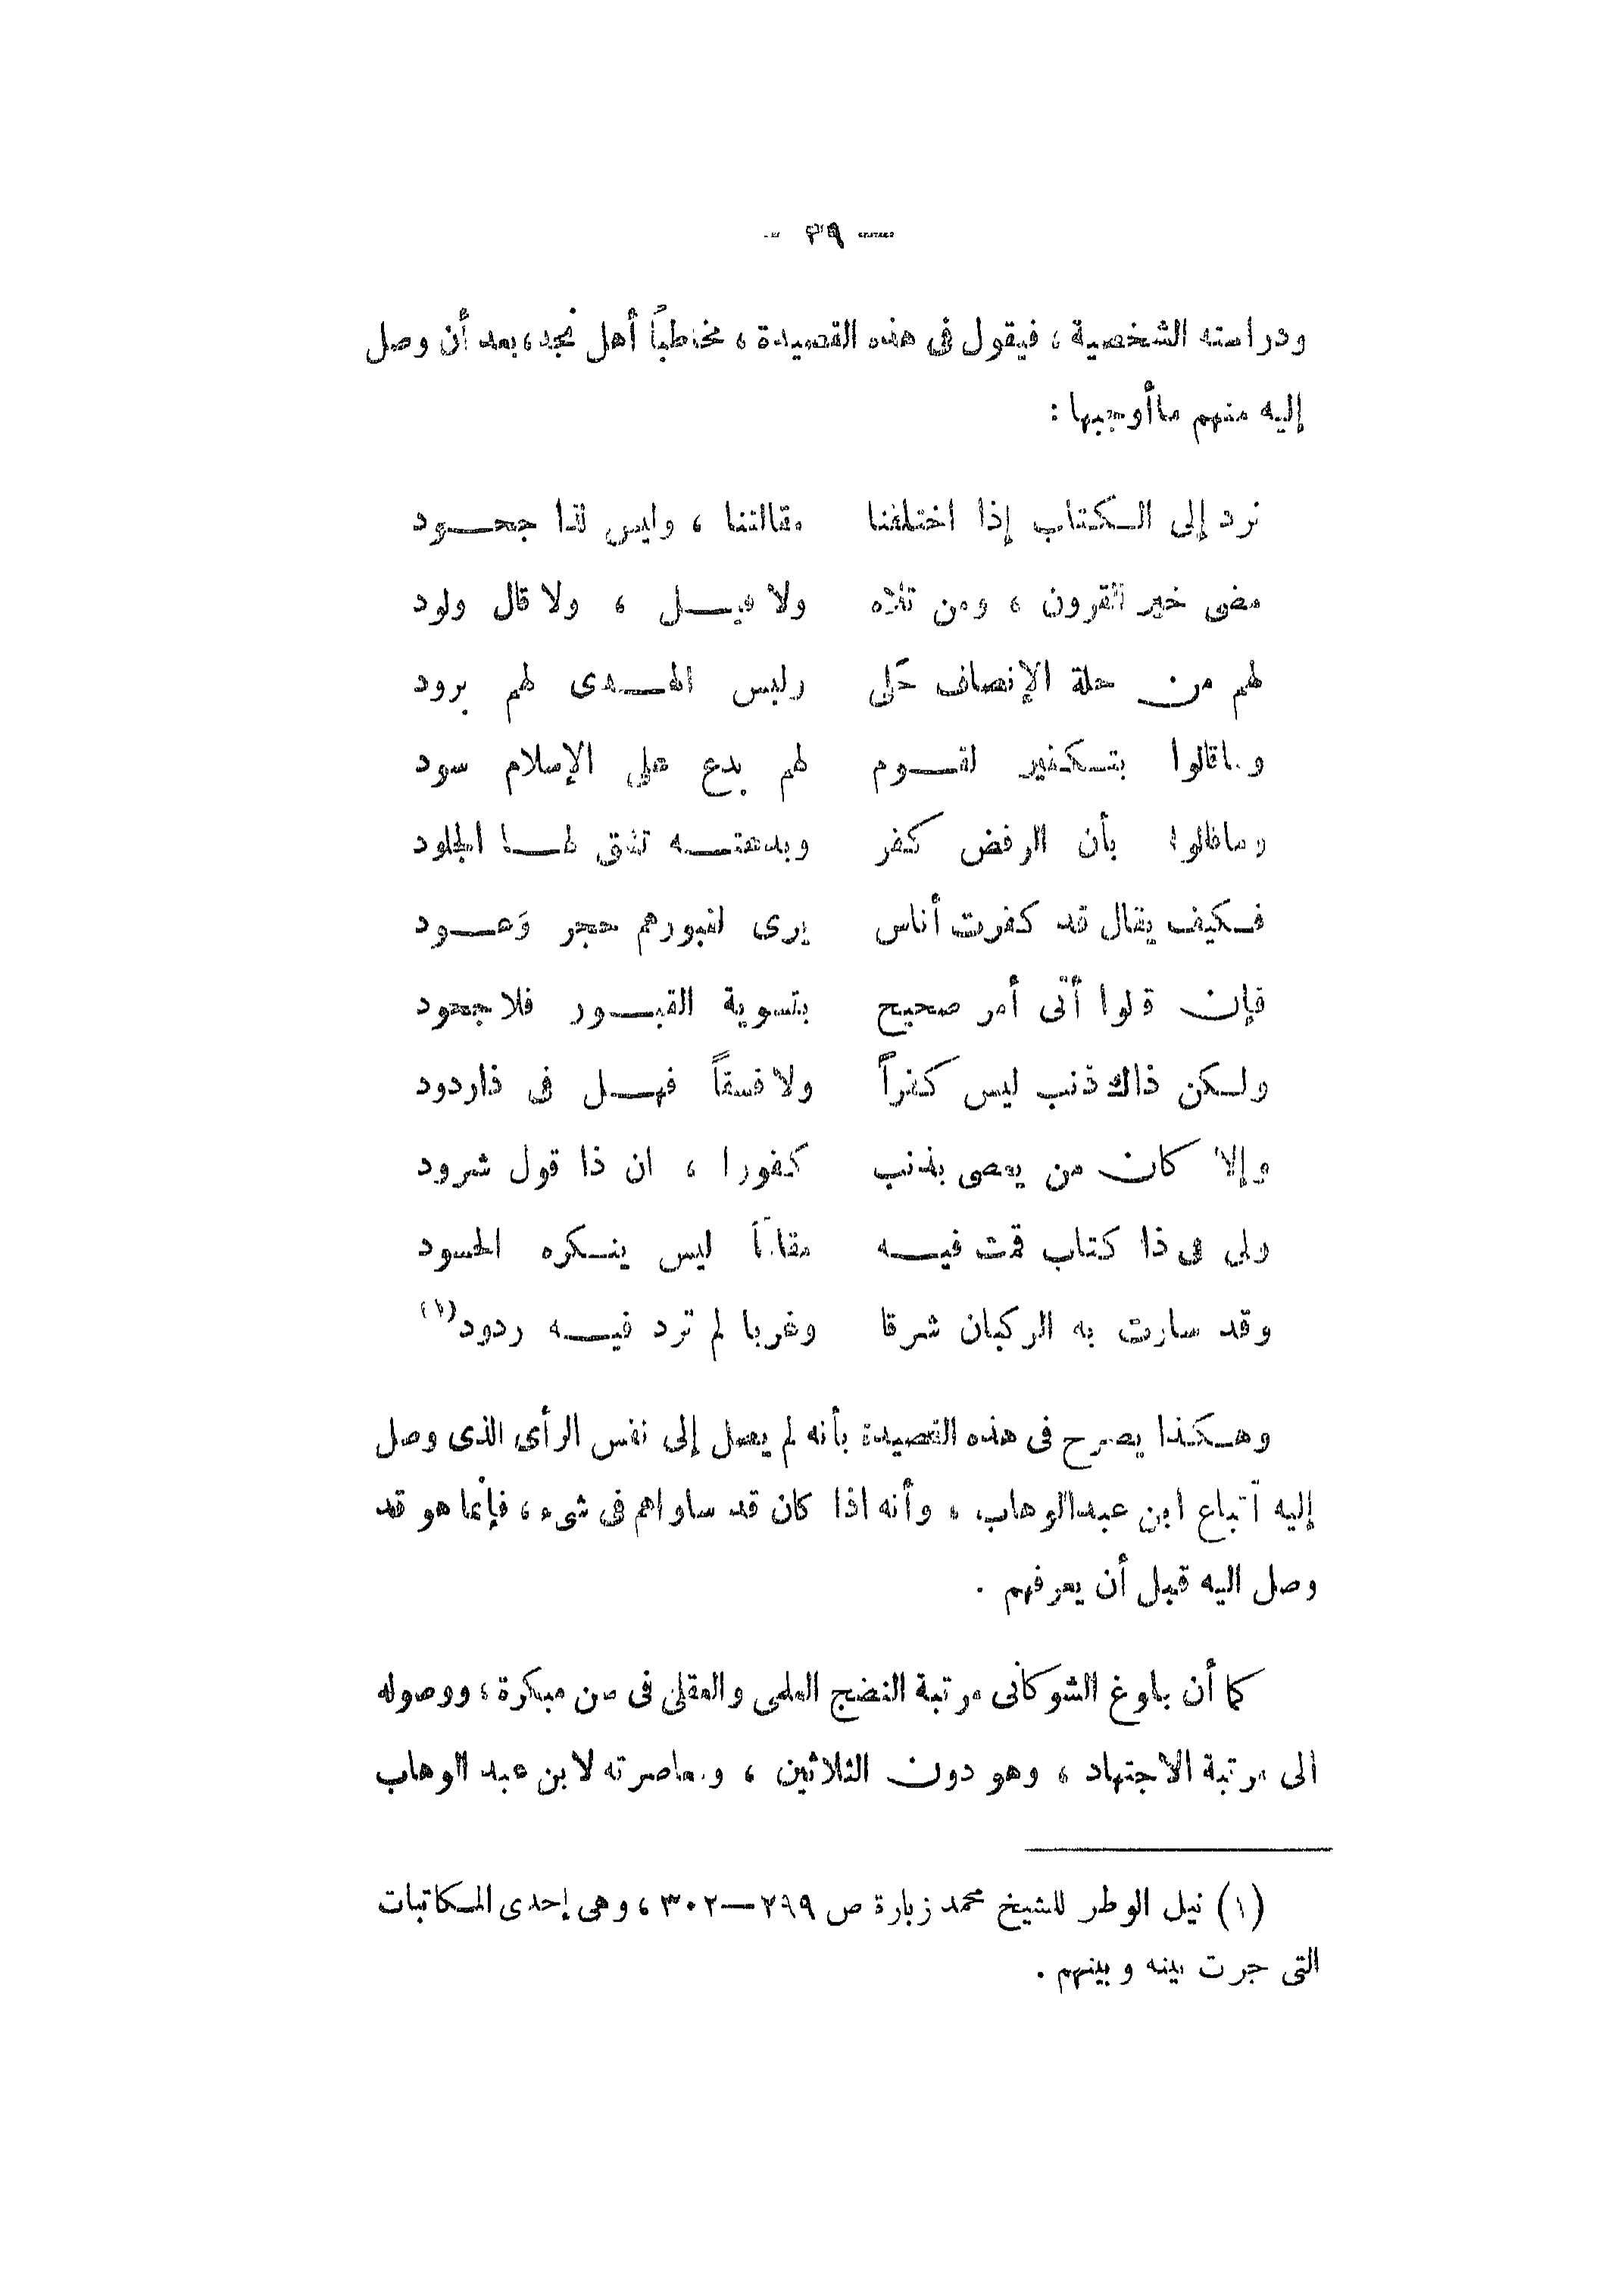 — ٣٩ —
ودراسته الشخصية ، فيقول فى هذه القصيدة ، مخاطباً أهل نجد ، بعد أن وصل
إليه منهم ما أوجبها :
نرد إلى الكتاب إذا اختلفنا مقالتنا ، وليس لنا جحود
مضى خير القرون ، ومن تلاه ولا قيل ، ولا قال ولود
لهم من حلة الإنصاف حَلى وليس الهدى لهم برود
وما قالوا بتكفير لقوم لهم بدع على الإسلام سود
وما قالوا بأن الرفض كفر وبدعته تشق لها الجلود
فكيف يقال قد كفرت أناس يرى لقبورهم حجر وَعود
فإن قالوا أتى أمر صحيح بتسوية القبور فلا جحود
ولكن ذاك ذنب ليس كفراً ولا فسقاً فهل فى ذا ردود
وإلا كان من يعصى بذنب كفورا ، ان ذا قول شرود
ولى فى ذا كتاب قمت فيه مقاماً ليس ينكره الحسود
وقد سارت به الركبان شرقا وغربا لم ترد فيه ردود (١)
وهكذا يصرح فى هذه القصيدة بأنه لم يصل إلى نفس الرأى الذى وصل
إليه أتباع ابن عبد الوهاب ، وأنه اذا كان قد ساواهم فى شىء ، فإنما هو قد
وصل اليه قبل أن يعرفهم .
كما أن بلوغ الشوكانى مرتبة النضج العلمى والعقلى فى سن مبكرة ، ووصوله
الى مرتبة الاجتهاد ، وهو دون الثلاثين ، ومعاصرته لابن عبد الوهاب
(١) نيل الوطر للشيخ محمد زبارة ص ٢٩٩—٣٠٢ ، وهى إحدى المكاتبات
التى جرت بينه وبينهم .